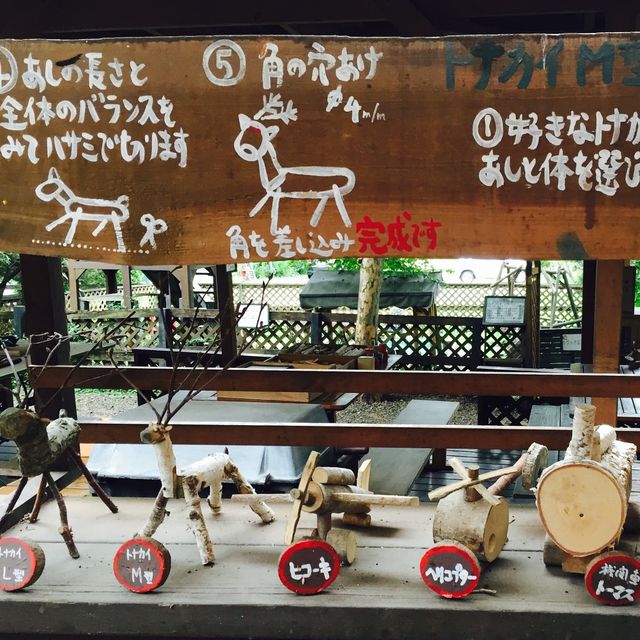 ④あしの長さと
全体のバランスを
みてハサミできります
⑤角の穴あけ
φ4m/m
角を差し込み完成です
トナカイM型
①好きなトナカ
あしと体を選び
トナカイ
L型
トナカイ
M型
ヒコーキ
ヘリコプター
機関車
トーマス